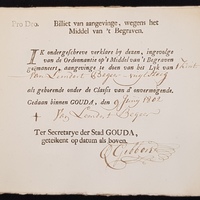 Pro Deo.
Billiet van aangevinge, wegens het
Middel van 't Begraven.
IK ondergeschreve verklare by dezen, ingevolge
van de Ordonnantie op 't Middel van 't Begraven
geëmaneert, aangevinge te doen van het Lyk van
Van Leendert
als gehorende onder de Classis van d' onvermogende.
Gedaan binnen GOUDA, den 9 Juny 1801
Van Leendert
Ter Secretarye der Stad GOUDA,
geteekent op datum als boven.